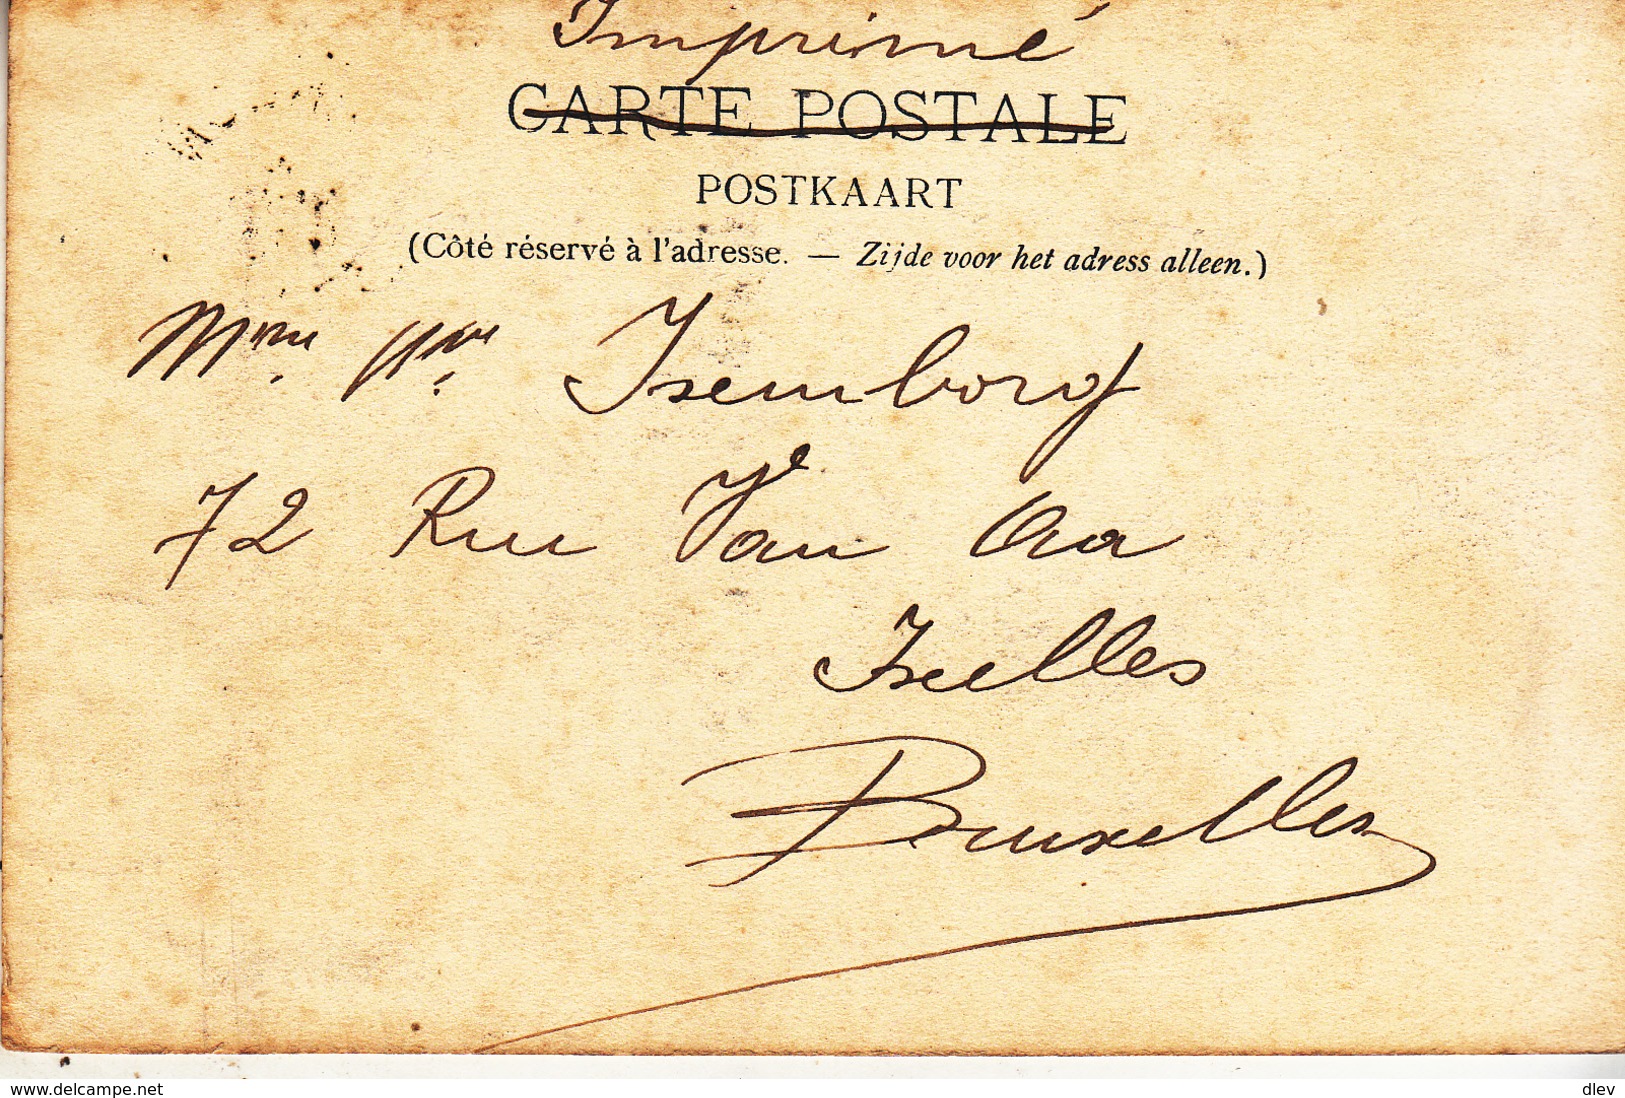 Imprimé
CARTE POSTALE
POSTKAART
(Côté réservé à l'adresse. — Zijde voor het adress alleen.)
Mme Vve Isemborg
72 Rue Van Aa
Ixelles
Bruxelles
www.delcampe.net
dlev